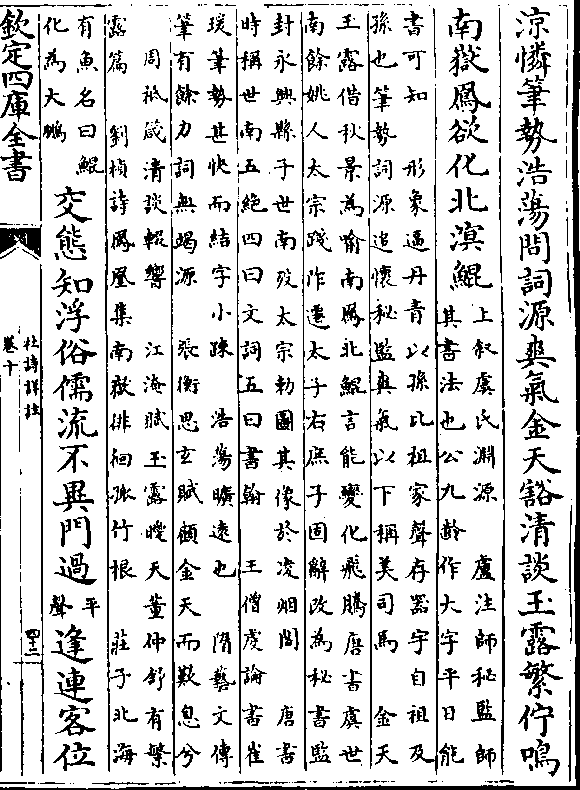 涼憐筆勢浩蕩問詞源爽氣金天豁清談玉露繁佇鳴
南嶽鳳欲化北溟鯤
上叙虞氏淵源 盧注師秘監師
其書法也公九齡作大字平日能
書可知 形象逼丹青以孫比祖家聲存器宇自祖及
孫也筆勢詞源追懷秘監爽氣以下稱美司馬 金天
玉露借秋景為喻南鳳北鯤言能變化飛騰唐書虞世
南餘姚人太宗踐阼遷太子右庶子固辭改為秘書監
封永興縣子世南歿太宗勅圖其像於凌烟閣 唐書
時稱世南五絶四曰文詞五曰書翰 王僧虔論書崔
瑗筆勢甚快而結字小疎 浩蕩曠遠也 隋藝文傳
筆有餘力詞無竭源 張衡思玄賦顧金天而歎息兮
周祗箴清談輟響 江海賦玉露曉天董仲舒有繁
露篇 劉楨詩鳳凰集南嶽徘徊孤竹根 莊子北海
有魚名曰鯤
化為大鵬
交態知浮俗儒流不異門過
平
聲
逢連客位
欽定四庫全書
杜詩詳註
卷十
四三